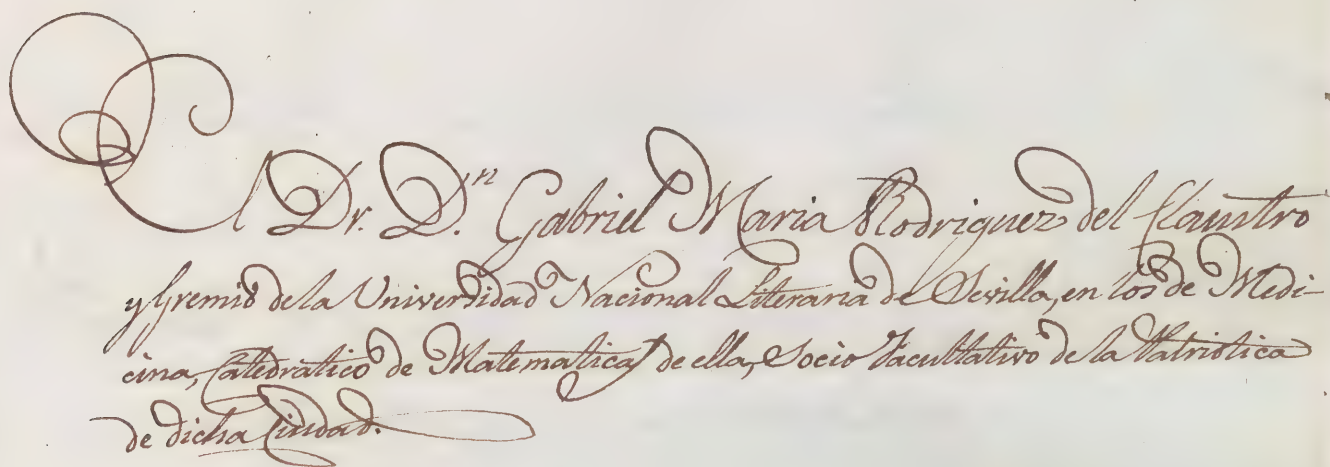 El Dr. D.n Gabriel Maria Rodriguez del Claustro
y Gremio de la Universidad Nacional Literaria de Sevilla, en los de Medi-
cina, Catedratico de Matematicas de ella, Socio Facultativo de la Patriotica
de dicha Ciudad.